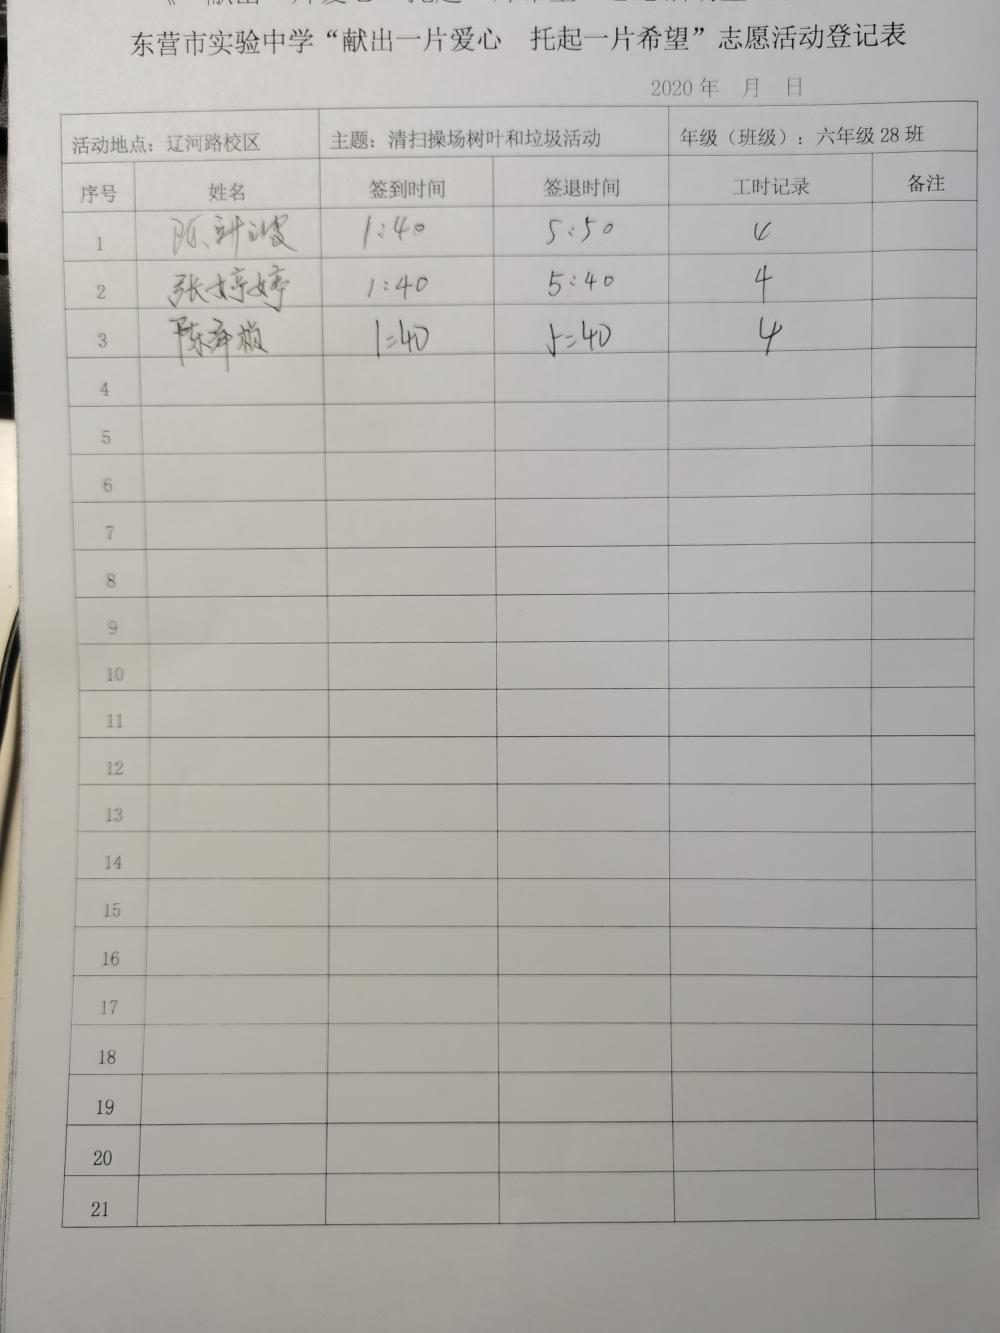 东营市实验中学“献出一片爱心　托起一片希望”志愿活动登记表
2020 年　月　日
活动地点：辽河路校区　主题：清扫操场树叶和垃圾活动　年级（班级）：六年级 28 班
序号　姓名　签到时间　签退时间　工时记录　备注
1　1:40　5:50　4
2　张婷婷　1:40　5:40　4
3　陈　1:40　5:40　4
4
5
6
7
8
9
10
11
12
13
14
15
16
17
18
19
20
21